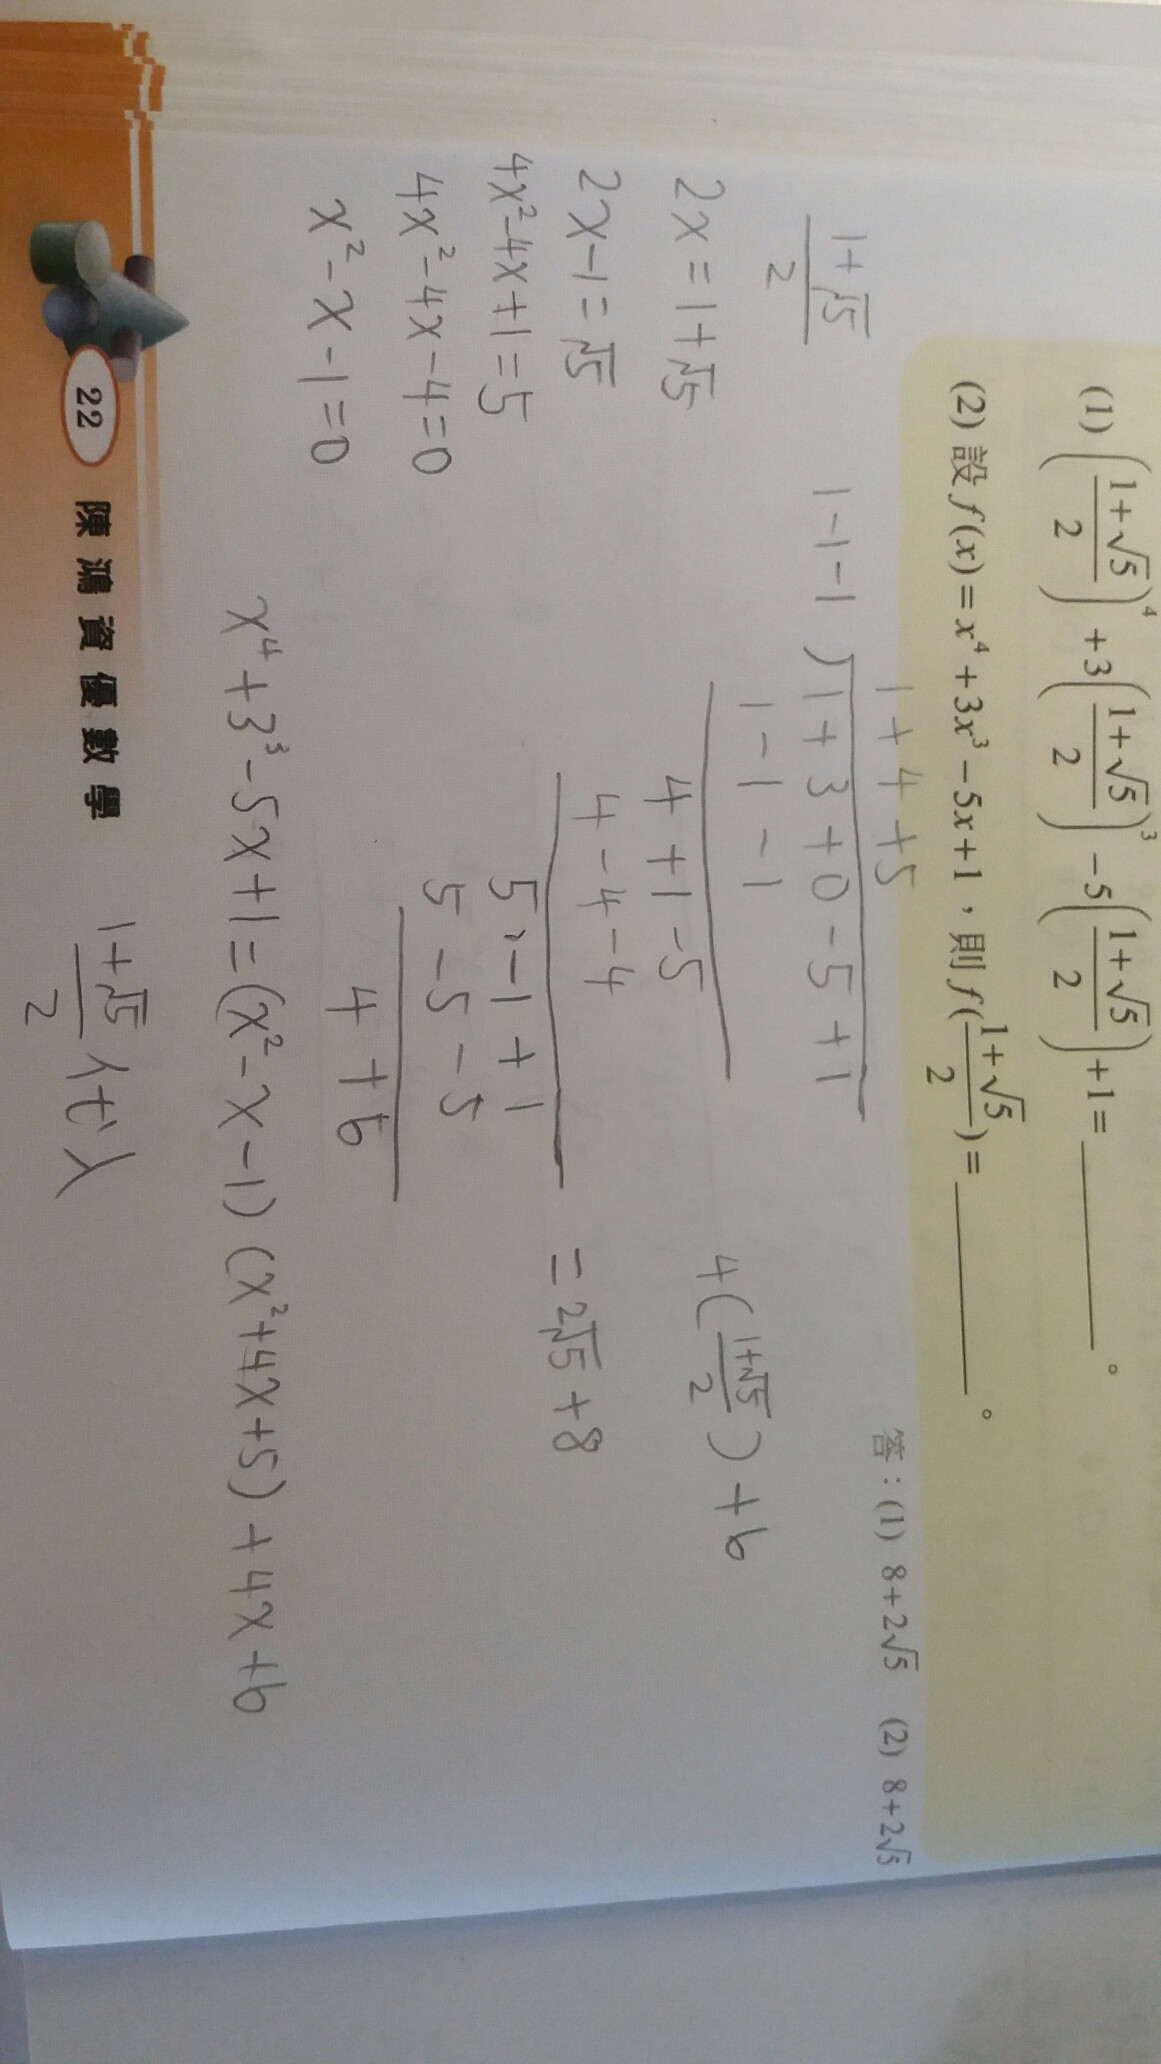 (1) (1+√5/2)⁴ +3(1+√5/2)³ −5(1+√5/2)+1=________。
(2) 設 f(x)=x⁴+3x³−5x+1，則 f(1+√5/2)=________。
答：(1) 8+2√5 (2) 8+2√5
1+√5/2
2x=1+√5
2x-1=√5
4x²-4x+1=5
4x²-4x-4=0
x²-x-1=0
1+4+5
1-1-1 ) 1+3+0-5+1
1-1-1
4+1-5
4-4-4
5-1+1
5-5-5
4+6
4(1+√5/2)+6
=2√5+8
x⁴+3³-5x+1=(x²-x-1)(x²+4x+5)+4x+6
1+√5/2 代入
22 陳鴻資優數學